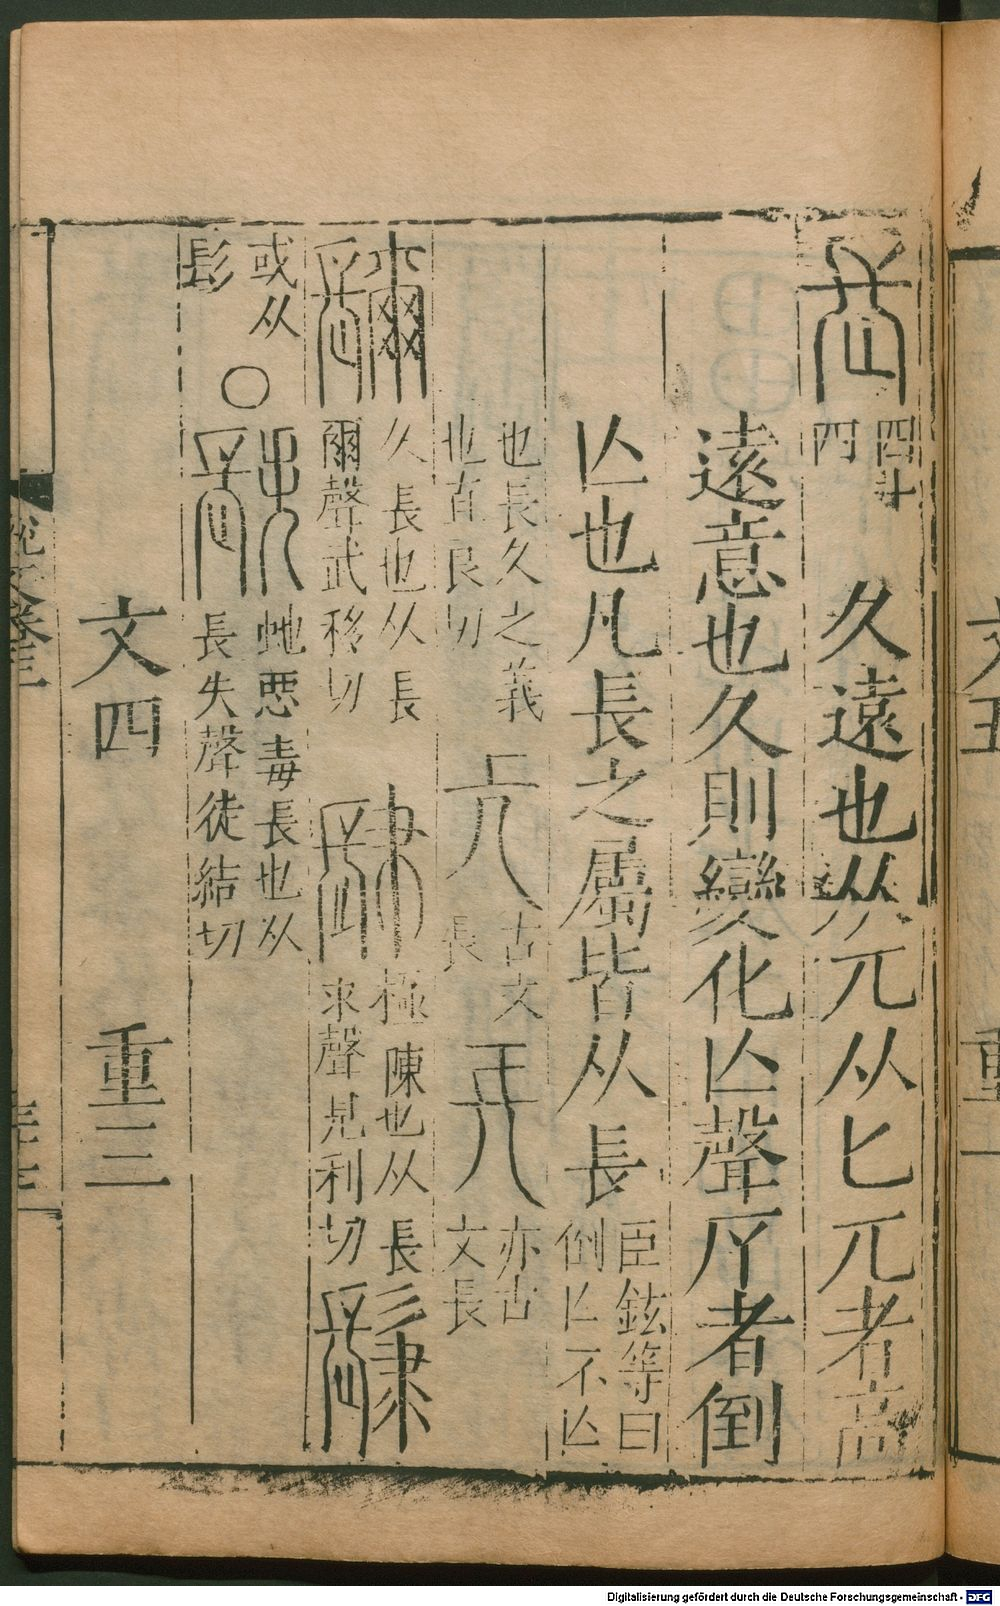 長 四四十四 久遠也从兀从匕兀者高
遠意也久則變化亾聲𠂆者倒
亾也凡長之屬皆从長 臣鉉等曰倒亾不亾
也長久之義也直良切 𠑷 古文長 𠑿 亦古文長
镾 久長也从長爾聲武移切 䦈 極陳也从長隶聲息利切 䰄
或从髟 〇 镻 蛇惡毒長也从長失聲徒結切
文四 重三
Digitalisierung gefördert durch die Deutsche Forschungsgemeinschaft - DFG